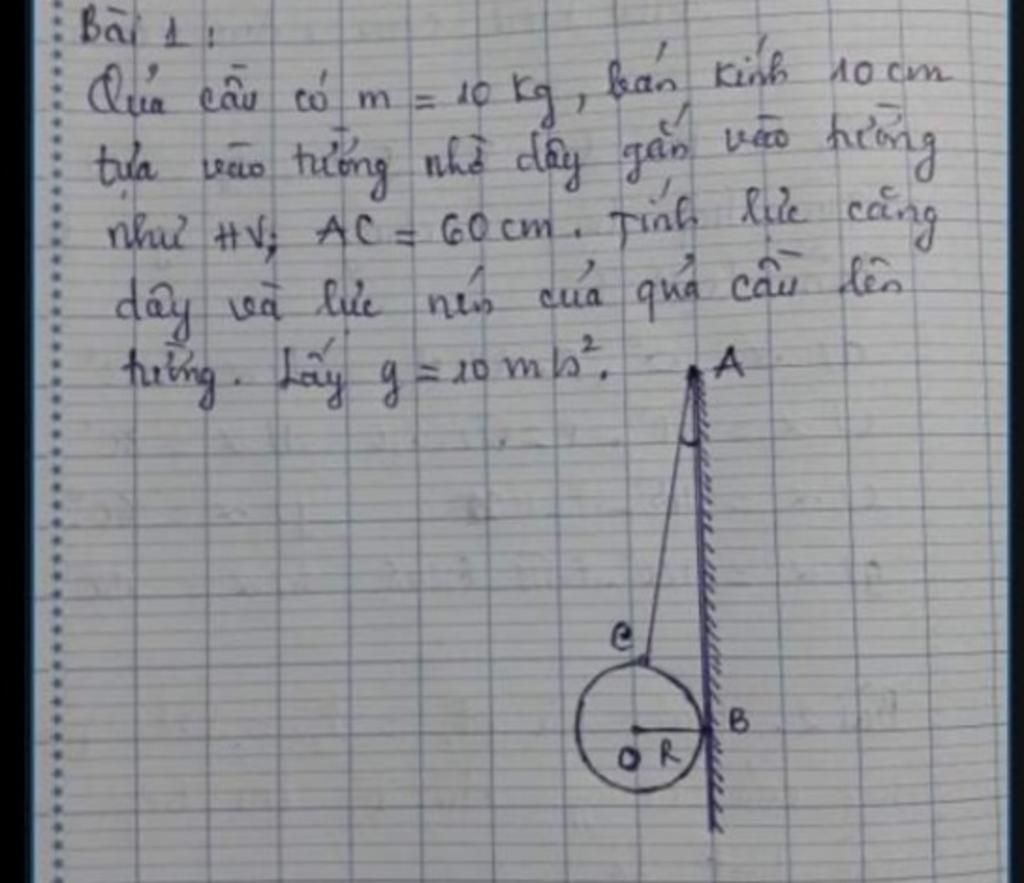 Bài 1:
Quả cầu có m = 10 kg, bán kính 10 cm
tựa vào tường nhờ dây gắn vào tường
như HV; AC = 60 cm. Tính lực căng
dây và lực nén của quả cầu lên
tường. Lấy g = 10 m/s².
A
C
B
O R